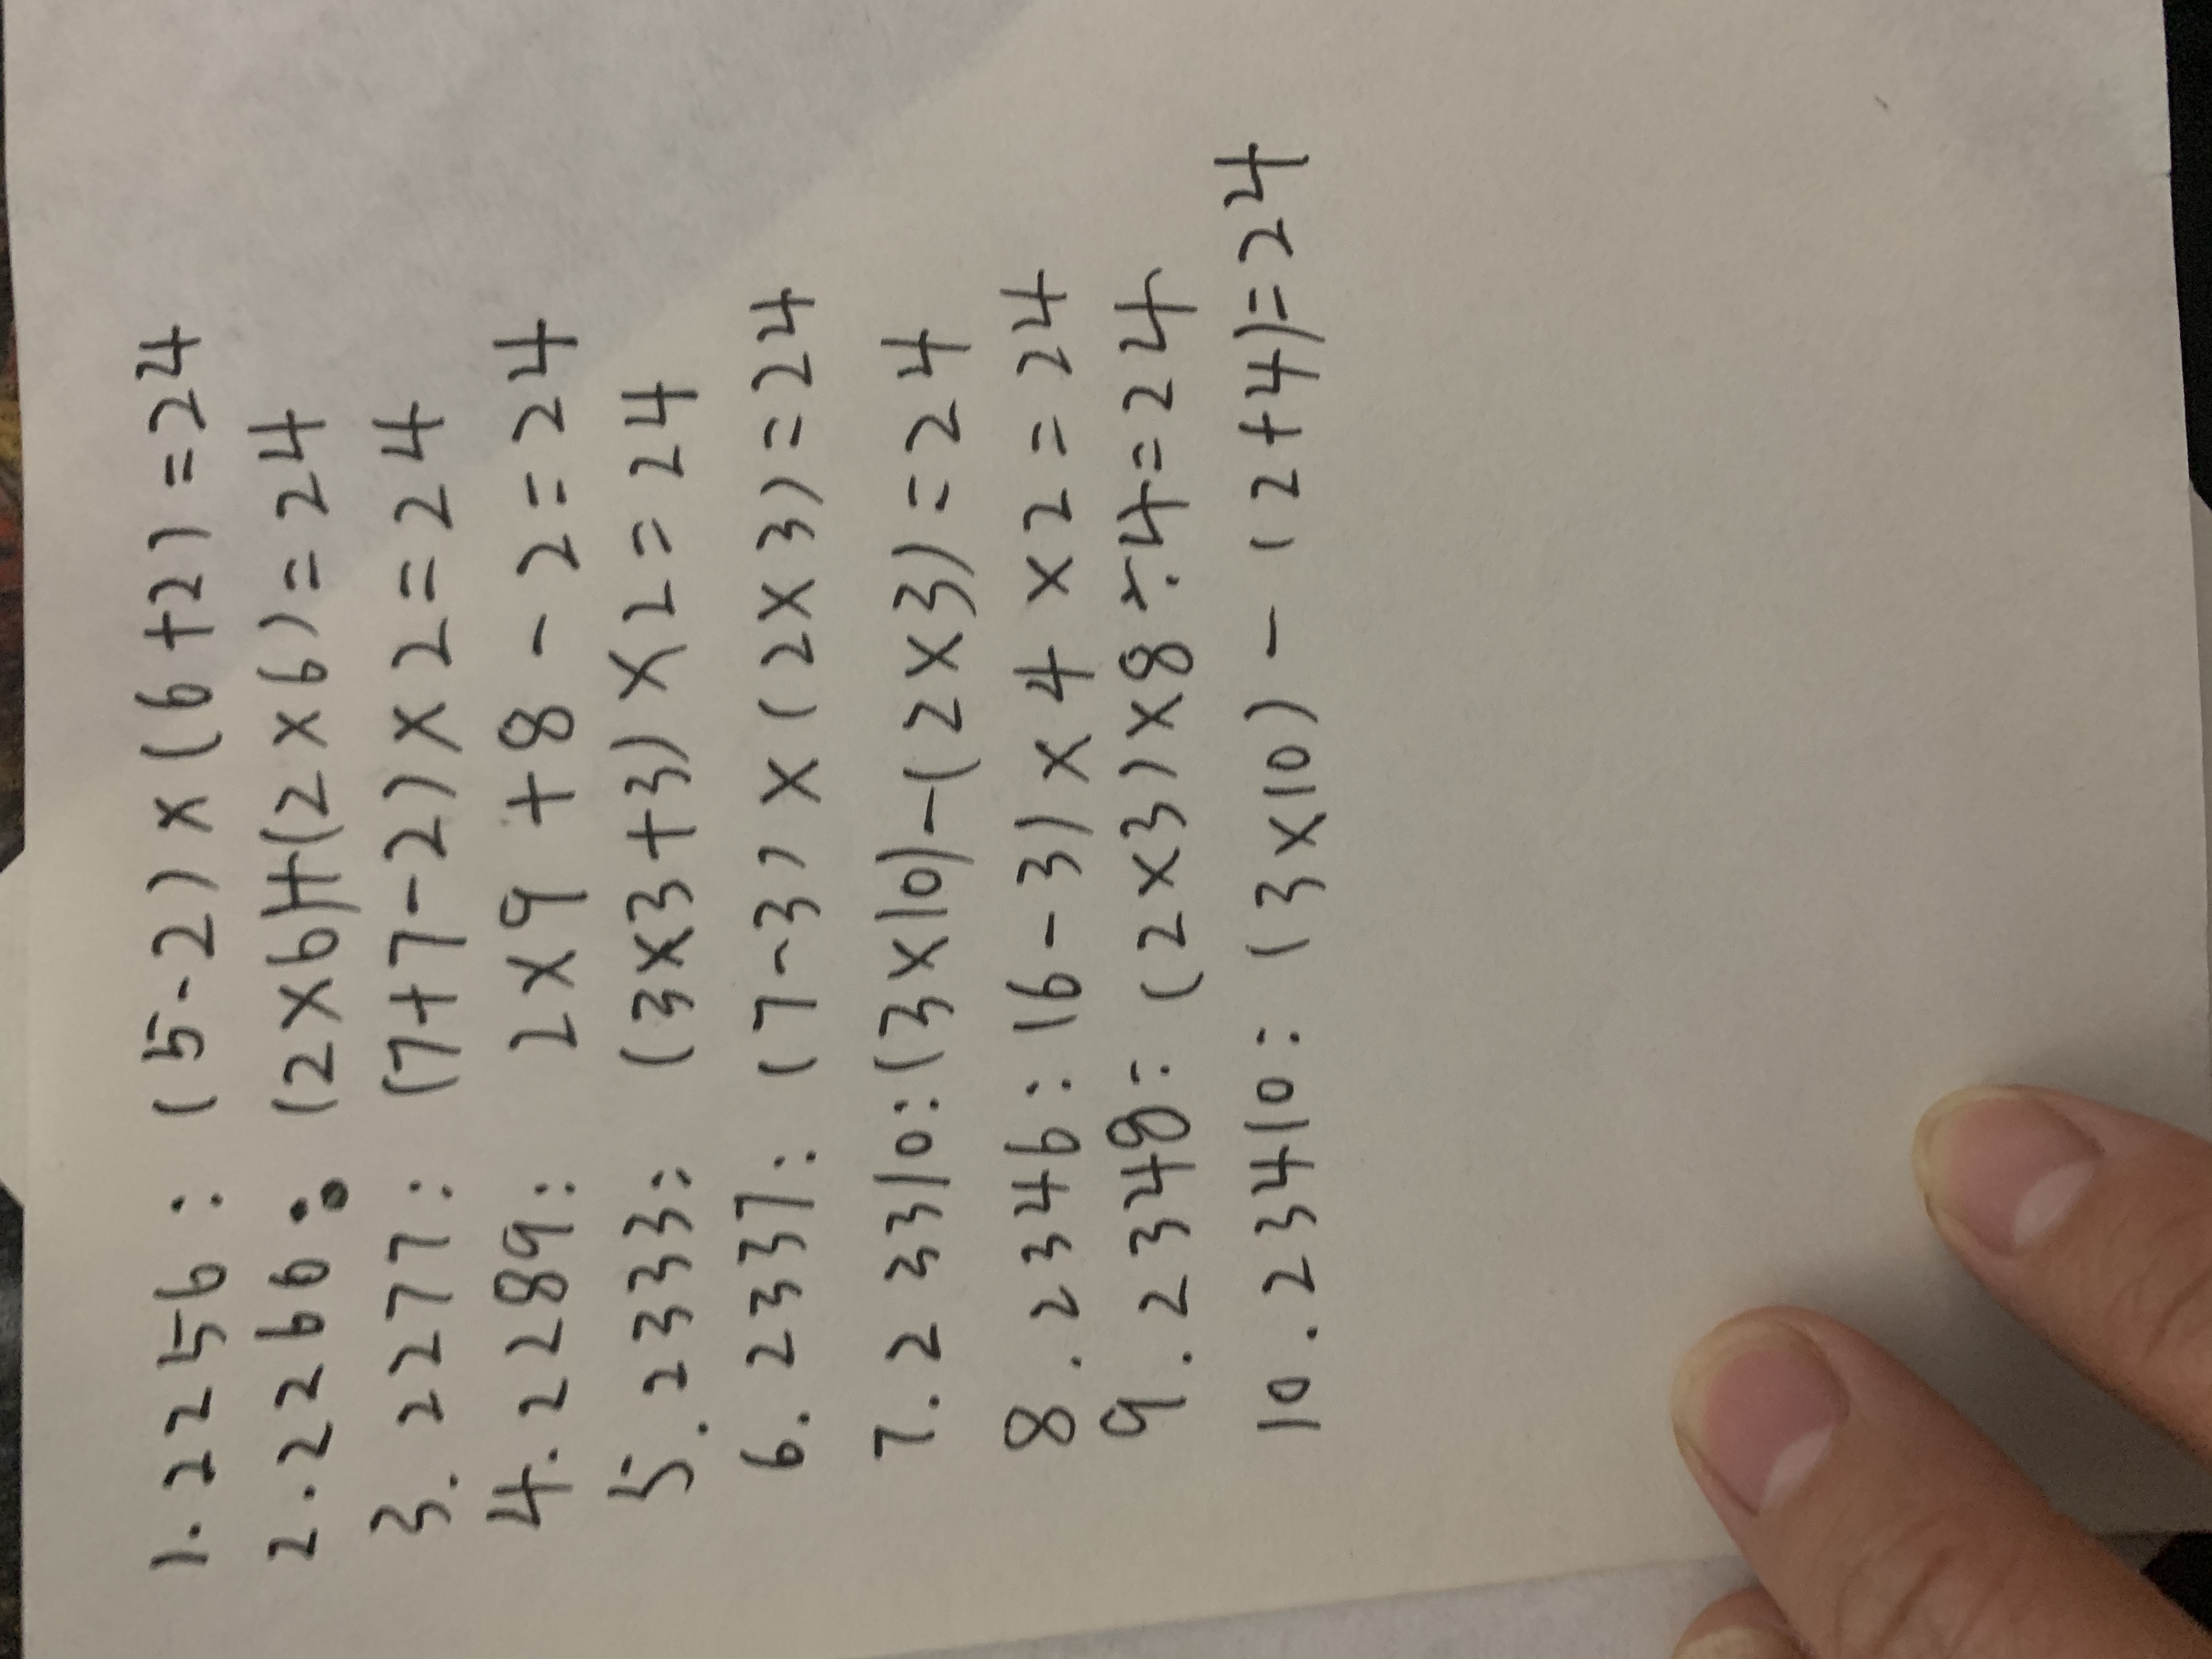 1. 2 2 5 6 : (5-2) × (6+2) = 24
2. 2 2 6 6 : (2×6)+(2×6) = 24
3. 2277: (7+7-2) × 2 = 24
4. 2289: 2×9 + 8 - 2 = 24
5. 2333: (3×3+3) × 2 = 24
6. 2337: (7-3) × (2×3) = 24
7. 2 3 3 10: (3×10)-(2×3) = 24
8. 2346: (6-3) × 4 × 2 = 24
9. 2348: (2×3) × 8 ÷ 4 = 24
10. 23410: (3×10) - (2+4) = 24